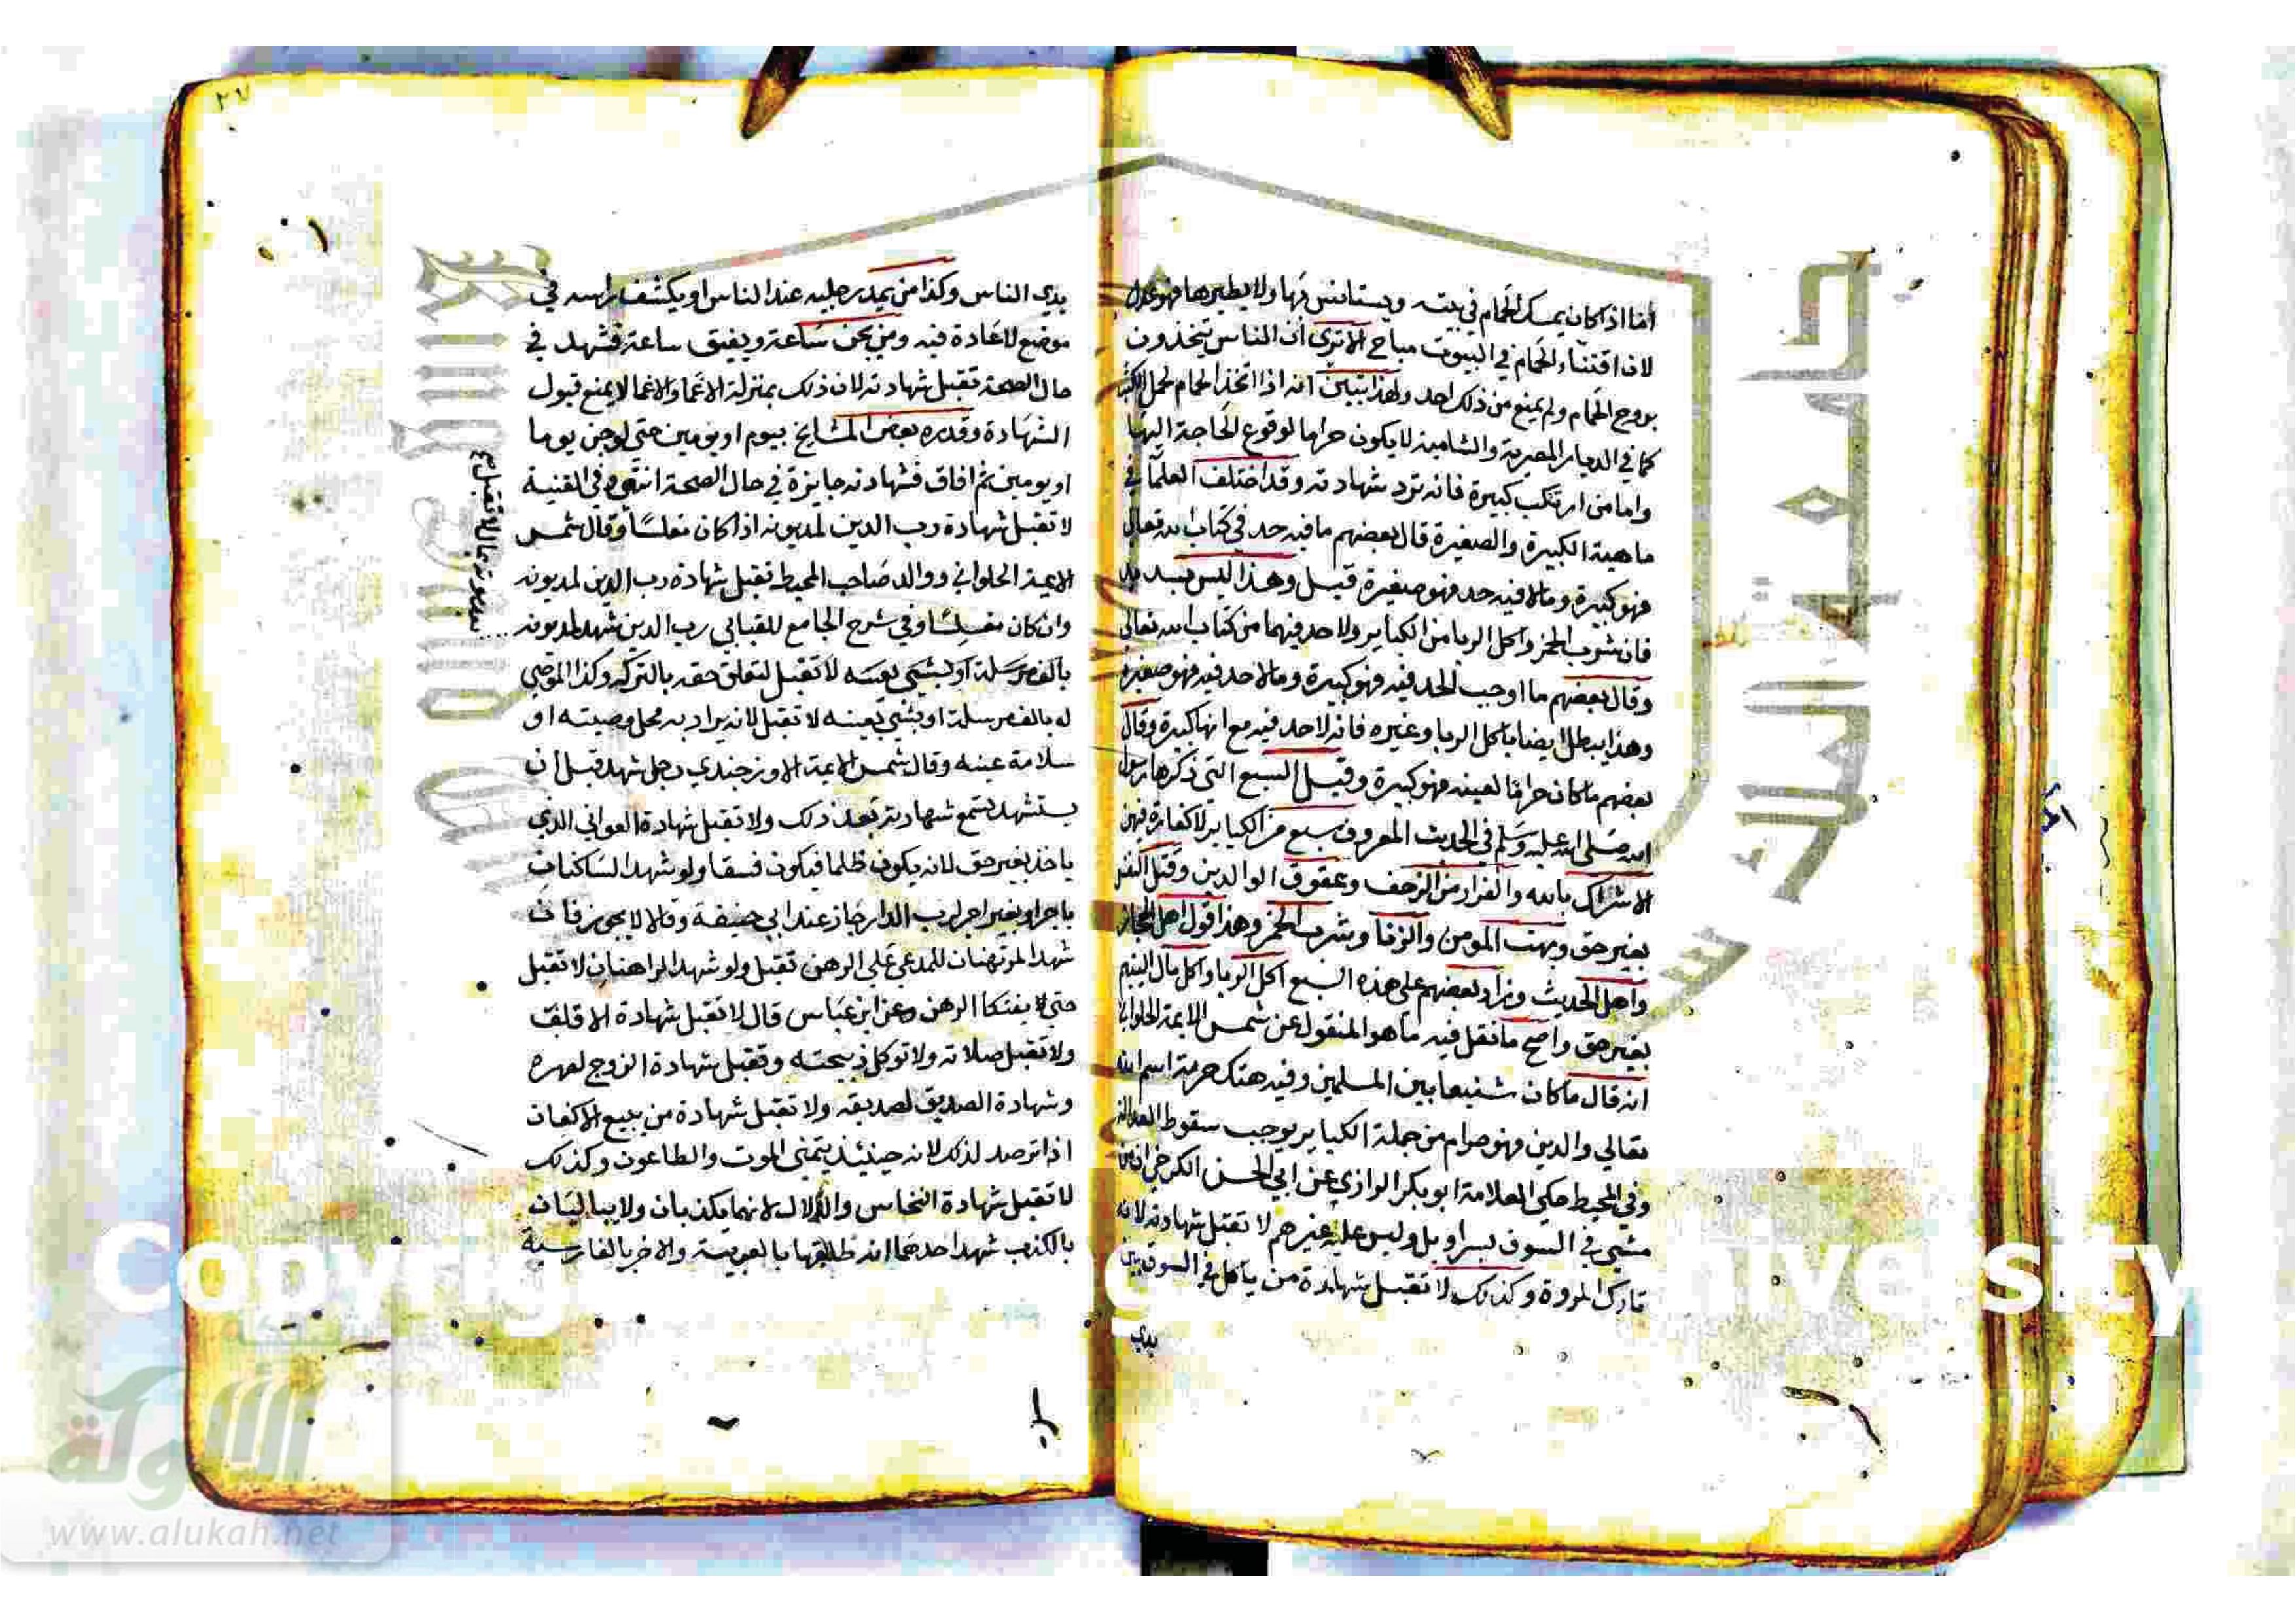 أما اذا كان يمسك الحمام في بيته ويستانس بها ولا يطيرها فهو عدل
لان اقتناء الحمام في البيوت مباح الا ترى ان الناس يتخذون
بروج الحمام ولم يمنع من ذلك احد ولهذا تبين انه اذا اتخذ الحمام لحمل الكتب
كما في الديار المصرية والشامية لا يكون حراما لوقوع الحاجة اليها
واما من ارتكب كبيرة فانه ترد شهادته وقد اختلف العلما في
ماهية الكبيرة والصغيرة قال بعضهم ما فيه حد في كتاب الله تعالى
فهو كبيرة وما لا فيه حد فهو صغيرة قيل وهذا ليس بسديد
فان شرب الخمر واكل الربا من الكباير ولا حد فيهما من كتاب الله تعالى
وقال بعضهم ما اوجب الحد فيه فهو كبيرة وما لا حد فيه فهو صغيرة
وهذا يبطل ايضا باكل الربا وغيره فانه لا حد فيه مع انها كبيرة وقال
بعضهم ما كان حراما لعينه فهو كبيرة وقيل السبع التي ذكرها رسول
الله صلى الله عليه وسلم في الحديث المعروف سبع من الكباير لا كفارة فيهن
الاشراك بالله والفرار من الزحف وعقوق الوالدين وقتل النفس
بغير حق وبهت المومن والزنا وشرب الخمر وهذا قول اهل الحجاز
واهل الحديث وزاد بعضهم على هذه السبع اكل الربا واكل مال اليتيم
بغير حق واصح ما نقل فيه ما هو المنقول عن شمس الايمة الحلواني
انه قال ما كان شنيعا بين المسلمين وفيه هتك حرمة اسم الله
تعالي والدين فهو حرام من جملة الكباير يوجب سقوط العدالة
وفي المحيط حكي العلامة ابو بكر الرازي عن ابي الحسن الكرخي ان من
مشي في السوق بسراويل وليس عليه غيرهم لا تقبل شهادته لانه
تارك المروة وكذلك لا تقبل شهادة من ياكل في السوق بين
يدي
٢٧
يدي الناس وكذا من يمد رجليه عند الناس او يكشف راسه في
موضع لا عادة فيه ومن يجن ساعة ويفيق ساعة فشهد في
حال الصحة تقبل شهادته لان ذلك بمنزلة الاغما والاغما لا يمنع قبول
الشهادة وقدره بعض المشايخ بيوم او يومين حتي لو جن يوما
او يومين ثم افاق فشهادته جايزة في حال الصحة انتهى وفي القنية
لا تقبل شهادة رب الدين لمديونه اذا كان مفلسا وقال شمس
الايمة الحلواني ووالد صاحب المحيط تقبل شهادة رب الدين لمديونه
وان كان مفلسا وفي شرح الجامع للقبابي رب الدين شهد لمديونه
بالف مرسلة او بشي بعينه لا تقبل لتعلق حقه بالتركه وكذا الموصي
له بالف مرسلة او بشي بعينه لا تقبل لانه يراد به محل وصيته او
سلامة عينه وقال شمس الايمة الاوزجندي رجل شهد قبل ان
يستشهد تسمع شهادته بعد ذلك ولا تقبل شهادة العواني الذي
ياخذ بغير حق لانه يكون ظلما فيكون فسقا ولو شهد الساكنان
باجر او بغير اجر لرب الدار جاز عند ابي حنيفة وقالا لا يجوز فان
شهد المرتهنان للمدعي على الرهن تقبل ولو شهد الراهنان لا تقبل
حتي لا يفتكا الرهن وعن ابن عباس قال لا تقبل شهادة الاقلف
ولا تقبل صلاته ولا توكل ذبيحته وتقبل شهادة الزوج لصهره
وشهادة الصديق لصديقه ولا تقبل شهادة من يبيع الاكفان
اذا ترصد لذلك لانه حينئذ يتمنى الموت والطاعون وكذلك
لا تقبل شهادة النخاس والدلال لانهما يكذبان ولا يباليان
بالكذب شهد احدهما انه طلقها بالعربية والاخر بالفارسية
بعد موته بمال لا تقبل
Copyrig
g
niversity
جامعة الملك سعود
شبكة
الألوكة
www.alukah.net